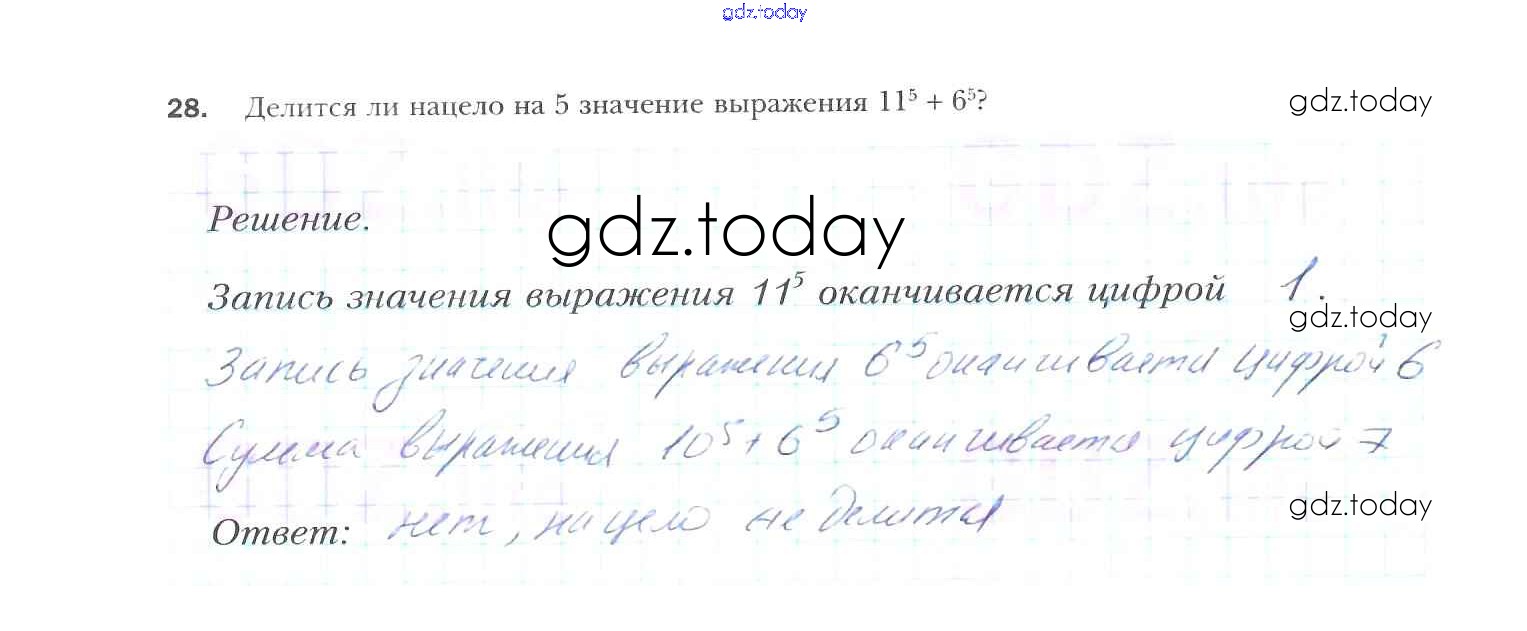 gdz.today
28. Делится ли нацело на 5 значение выражения 11⁵ + 6⁵?
gdz.today
Решение.
gdz.today
Запись значения выражения 11⁵ оканчивается цифрой 1.
gdz.today
Запись значения выражения 6⁵ оканчивается цифрой 6
Сумма выражения 10⁵ + 6⁵ оканчивается цифрой 7
gdz.today
Ответ: нет, нацело не делится